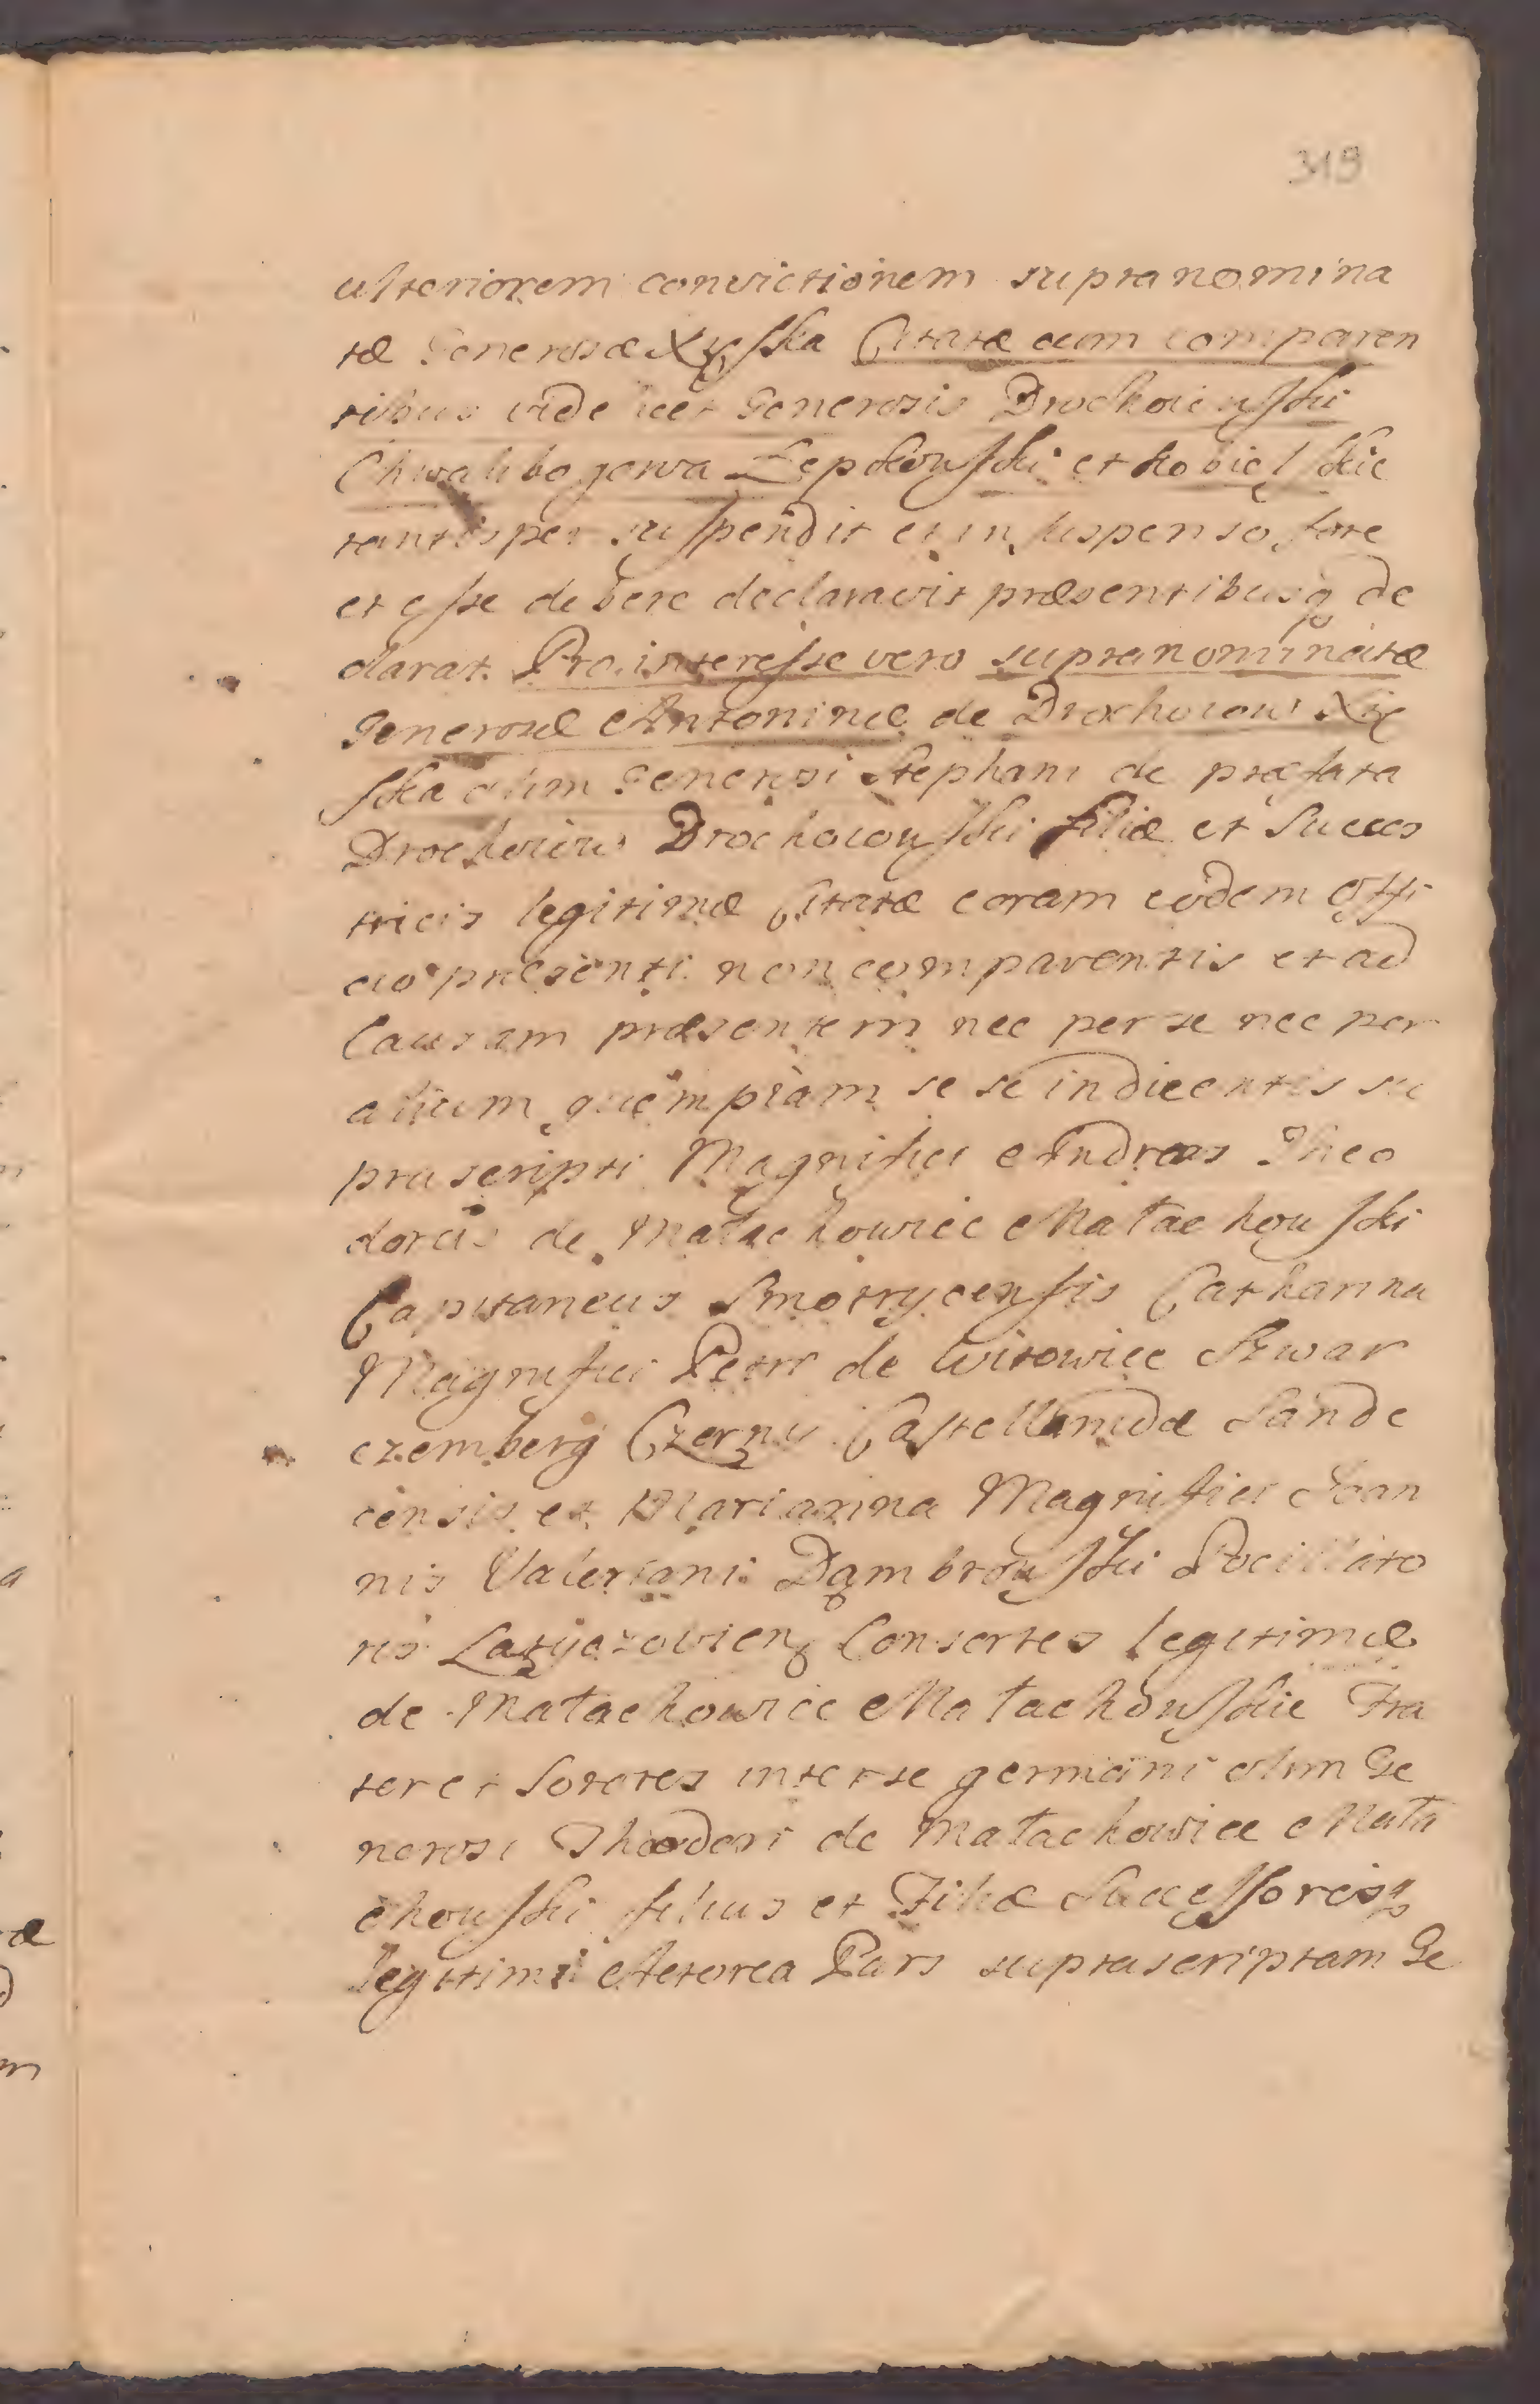 319
ulteriorem convictionem supranomina
tæ Generosæ Xięska Citatæ cum comparen
tibus videlicet Generosis Drochoiewski
Chwalibogowa Łepkowski et Kobielskie
tantisper suspendit et in suspenso fore
et esse debere declaravit præsentibusq de
clarat. Pro interesse vero supranominatæ
Generosæ Antoninæ de Drochoiow Xię
ska olim Generosi Stephani de præfata
Drochoiow Drochoiowski filiæ et Succes
tricis legitimæ Citatæ coram eodem Offi
cio præsenti non comparentis et ad
Causam præsentem nec per se nec per
alium quempiam se se indicentis su
prascripti Magnifici Andreas Theo
dorus de Małachowice Małachowski
Capitaneus Smotrycensis Catharina
Magnifici Petri de Witowice Szwar
czemberg Czerny Castellanidæ Sande
censis et Marianna Magnifici Joan
nis Valeriani Dąmbrowski Pocillato
ris Latyczovien Consortes legitimæ
de Małachowice Małachowskie Fra
ter et Sorores inter se germani olim Ge
nerosi Theodori de Małachowice Mała
chowski filius et Filiæ Successoresq
legitimi Actorea Pars suprascriptam Ge